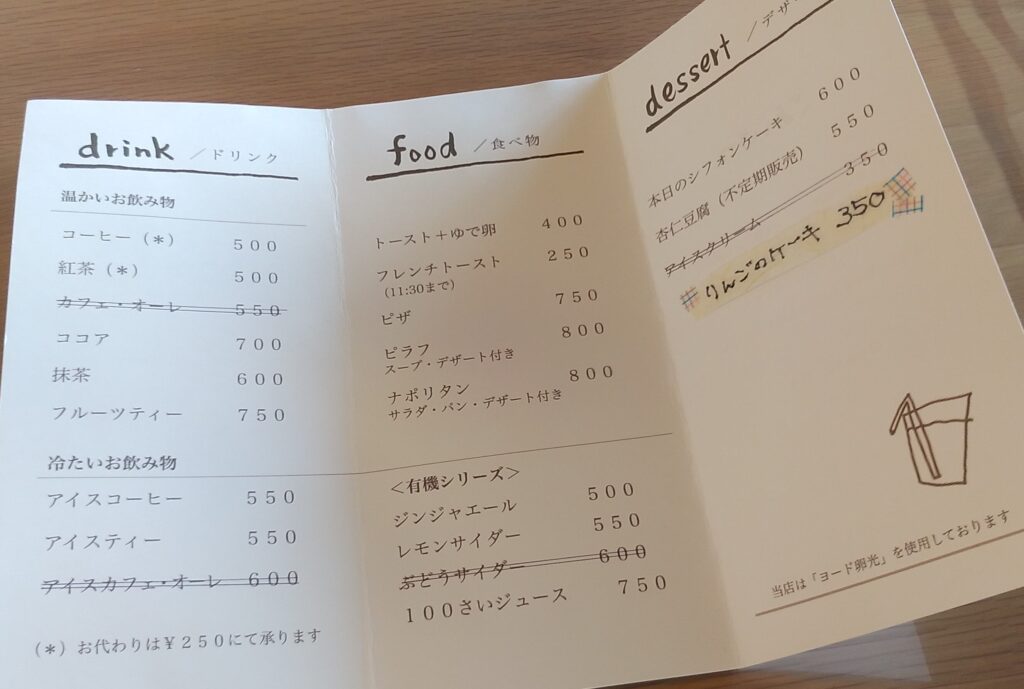 drink ／ドリンク
温かいお飲み物
コーヒー（＊） ５００
紅茶（＊） ５００
カフェ・オーレ ５５０
ココア ７００
抹茶 ６００
フルーツティー ７５０
冷たいお飲み物
アイスコーヒー ５５０
アイスティー ５５０
アイスカフェ・オーレ ６００
（＊）お代わりは￥２５０にて承ります
food ／食べ物
トースト＋ゆで卵 ４００
フレンチトースト ２５０
(11:30まで)
ピザ ７５０
ピラフ ８００
スープ・デザート付き
ナポリタン ８００
サラダ・パン・デザート付き
＜有機シリーズ＞
ジンジャエール ５００
レモンサイダー ５５０
ぶどうサイダー ６００
１００さいジュース ７５０
dessert ／デザ
本日のシフォンケーキ ６００
杏仁豆腐（不定期販売） ５５０
アイスクリーム ３５０
りんごのケーキ 350
当店は「ヨード卵光」を使用しております